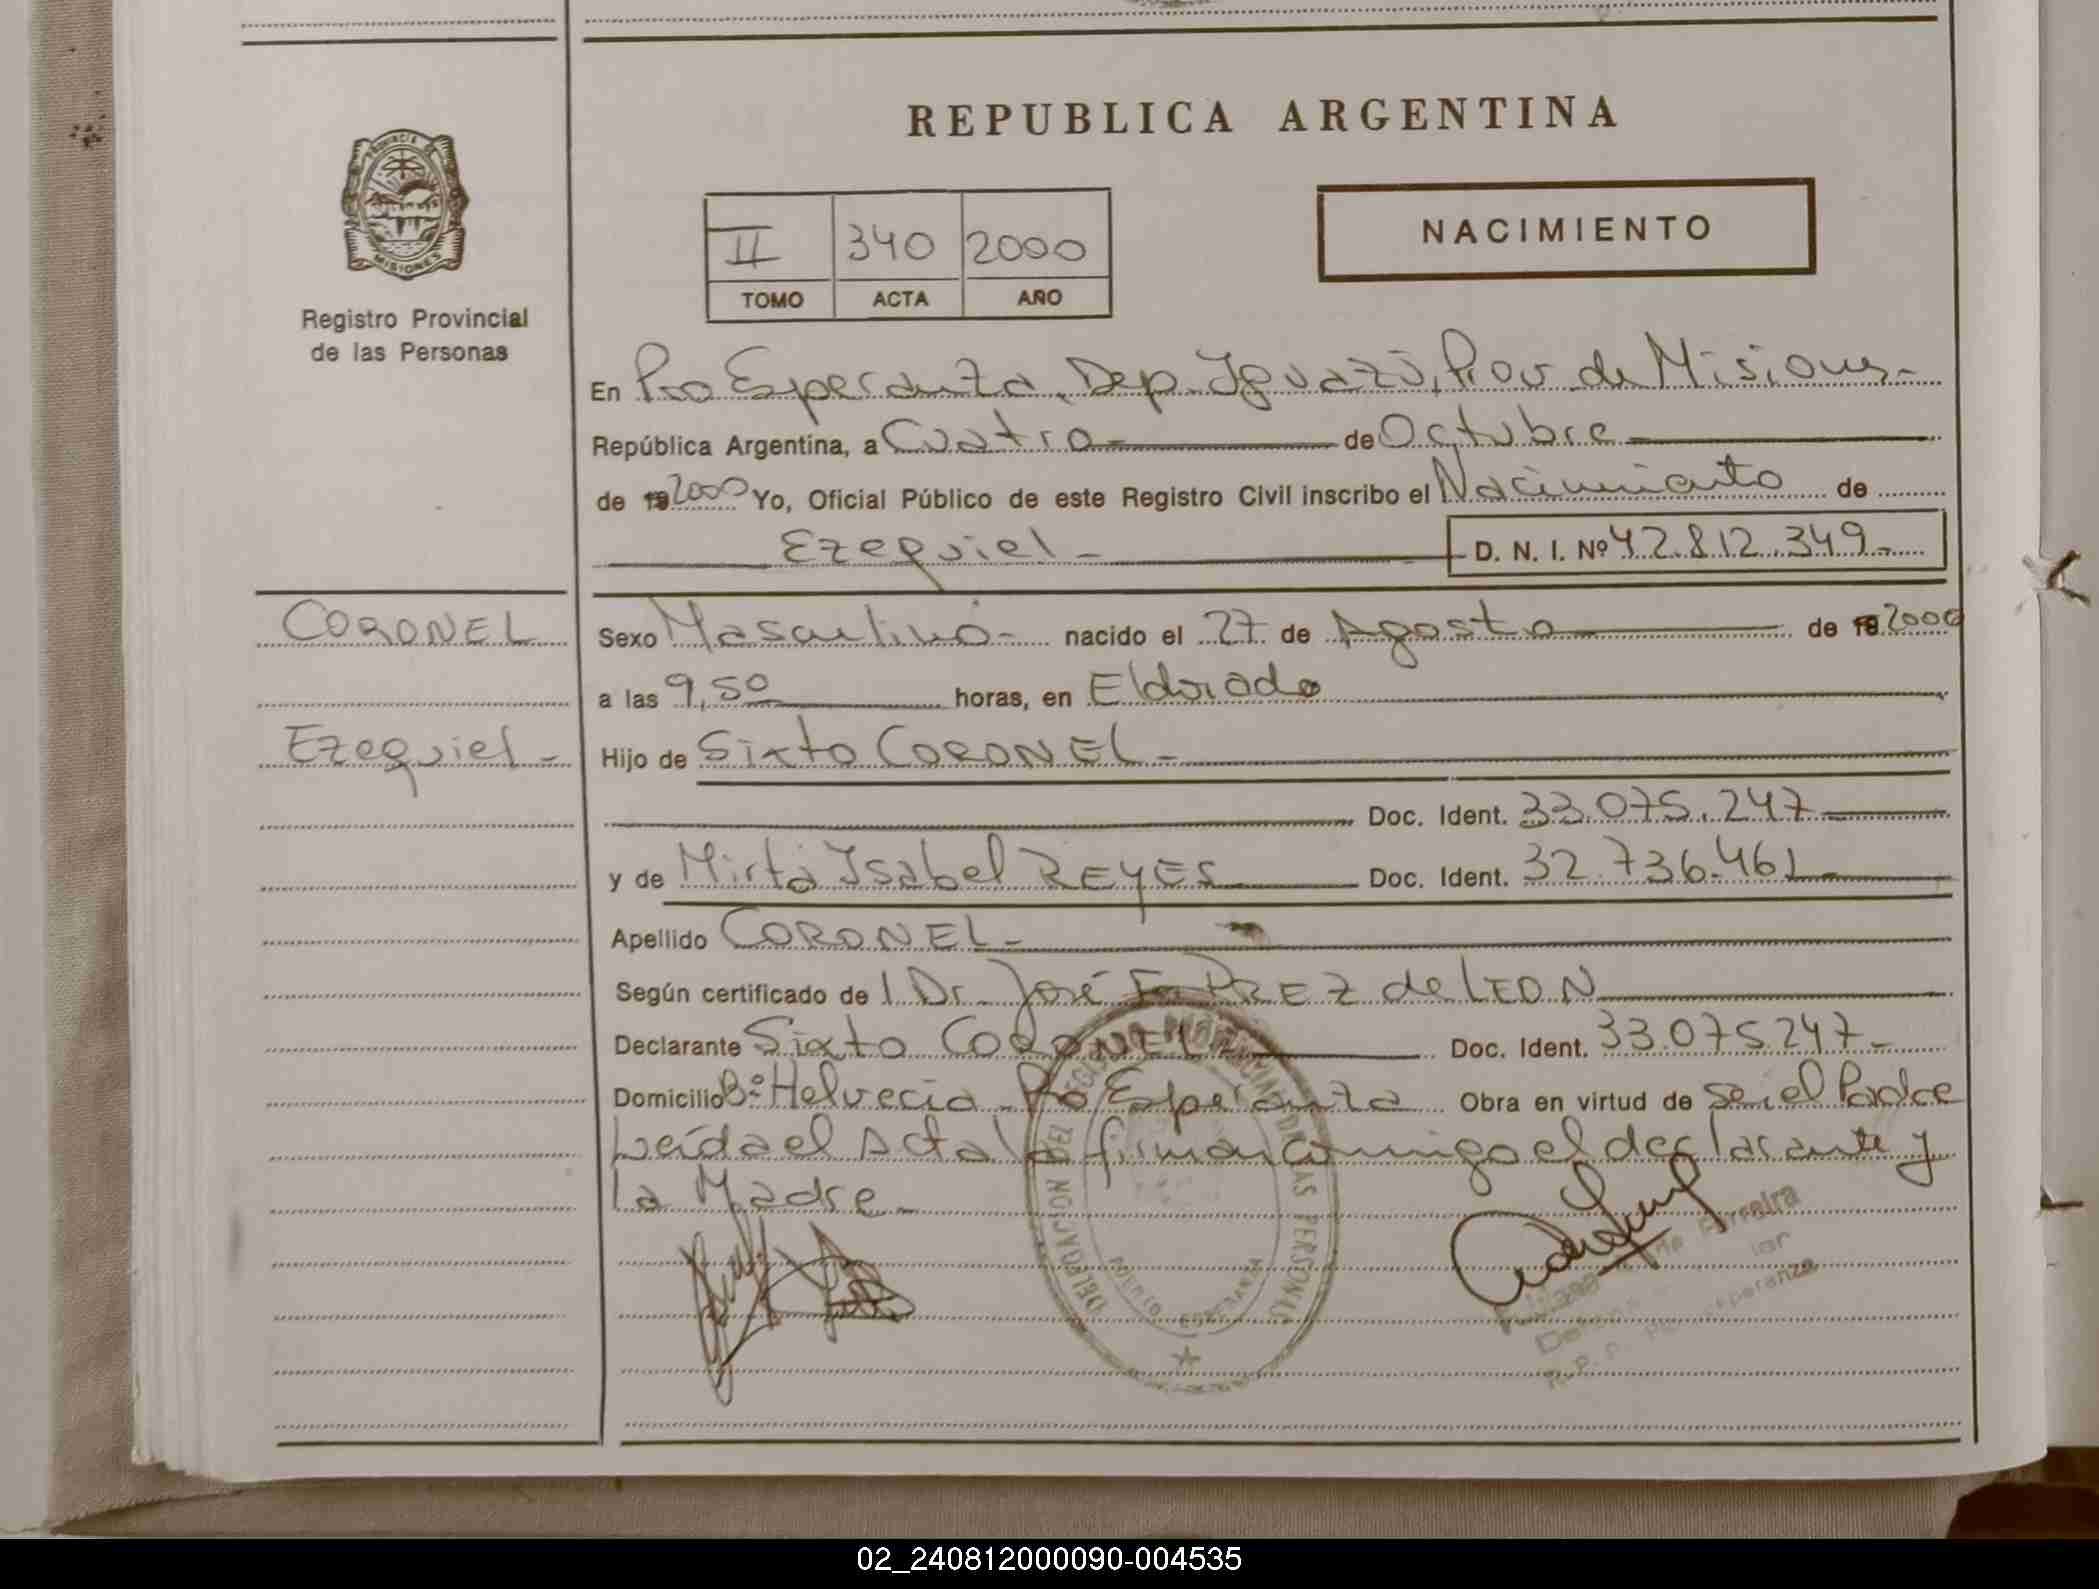 REPUBLICA ARGENTINA
PROVINCIA DE
MISIONES
Registro Provincial
de las Personas
II 340 2000
TOMO ACTA AÑO
NACIMIENTO
En Pto Esperanza, Dep. Iguazú, Prov de Misiones-
República Argentina, a Cuatro- de Octubre-
de 19 2000 Yo, Oficial Público de este Registro Civil inscribo el Nacimiento de
Ezequiel- D. N. I. Nº 42.812.349-
CORONEL
Ezequiel-
Sexo Masculino- nacido el 27 de Agosto de 19 2000
a las 9,50 horas, en Eldorado
Hijo de Sixto CORONEL-
Doc. Ident. 33.075.247-
y de Mirta Isabel REYES Doc. Ident. 32.736.461-
Apellido CORONEL-
Según certificado de l Dr. José PREZ de LEON
Declarante Sixto CORONEL- Doc. Ident. 33.075.247-
Domicilio Bº Helvecia Pto Esperanza Obra en virtud de ser el Padre
Leída el Acta la firman conmigo el declarante y
la Madre-
DELEGACION DEL REGISTRO PROVINCIAL DE LAS PERSONAS
PUERTO ESPERANZA
de Ferreira
Esperanza
02_240812000090-004535